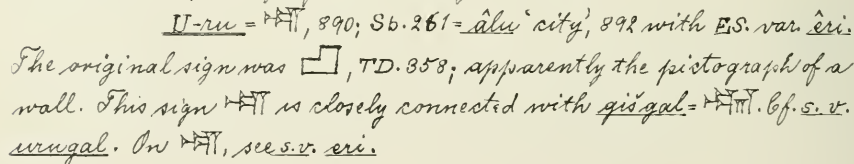 U-ru = 𒌷, 890; Sb. 261 = âlu 'city', 892 with ES. var. êri.
The original sign was , TD. 358; apparently the pictograph of a
wall. This sign 𒌷 is closely connected with gišgal = . Cf. s. v.
urugal. On 𒌷, see s.v. eri.